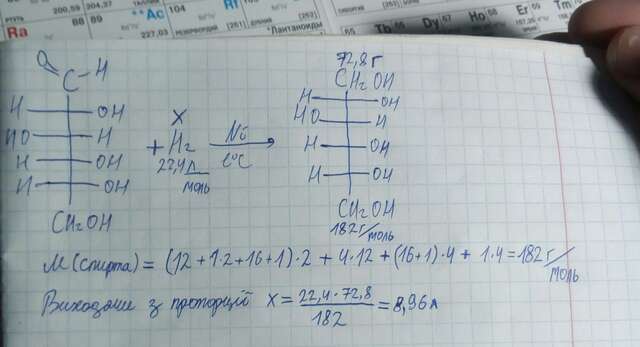 РТУТЬ 200,59 204,37 ТАЛЛИЙ
Ra 88 89 **Ac 104 Rf
227,03 [261] *Лантаноиды
Tb Dy Ho Er Tm
72,8 г
O
C H
CH2OH
H OH
H OH
HO H
X
HO H
+ H2 Ni
H OH
22,4 л/моль t°C
H OH
H OH
H OH
CH2OH
CH2OH
182 г/моль
M(спирта) = (12+1·2+16+1)·2 + 4·12 + (16+1)·4 + 1·4 = 182 г/моль
Виходячи з пропорції X = 22,4·72,8 / 182 = 8,96 л